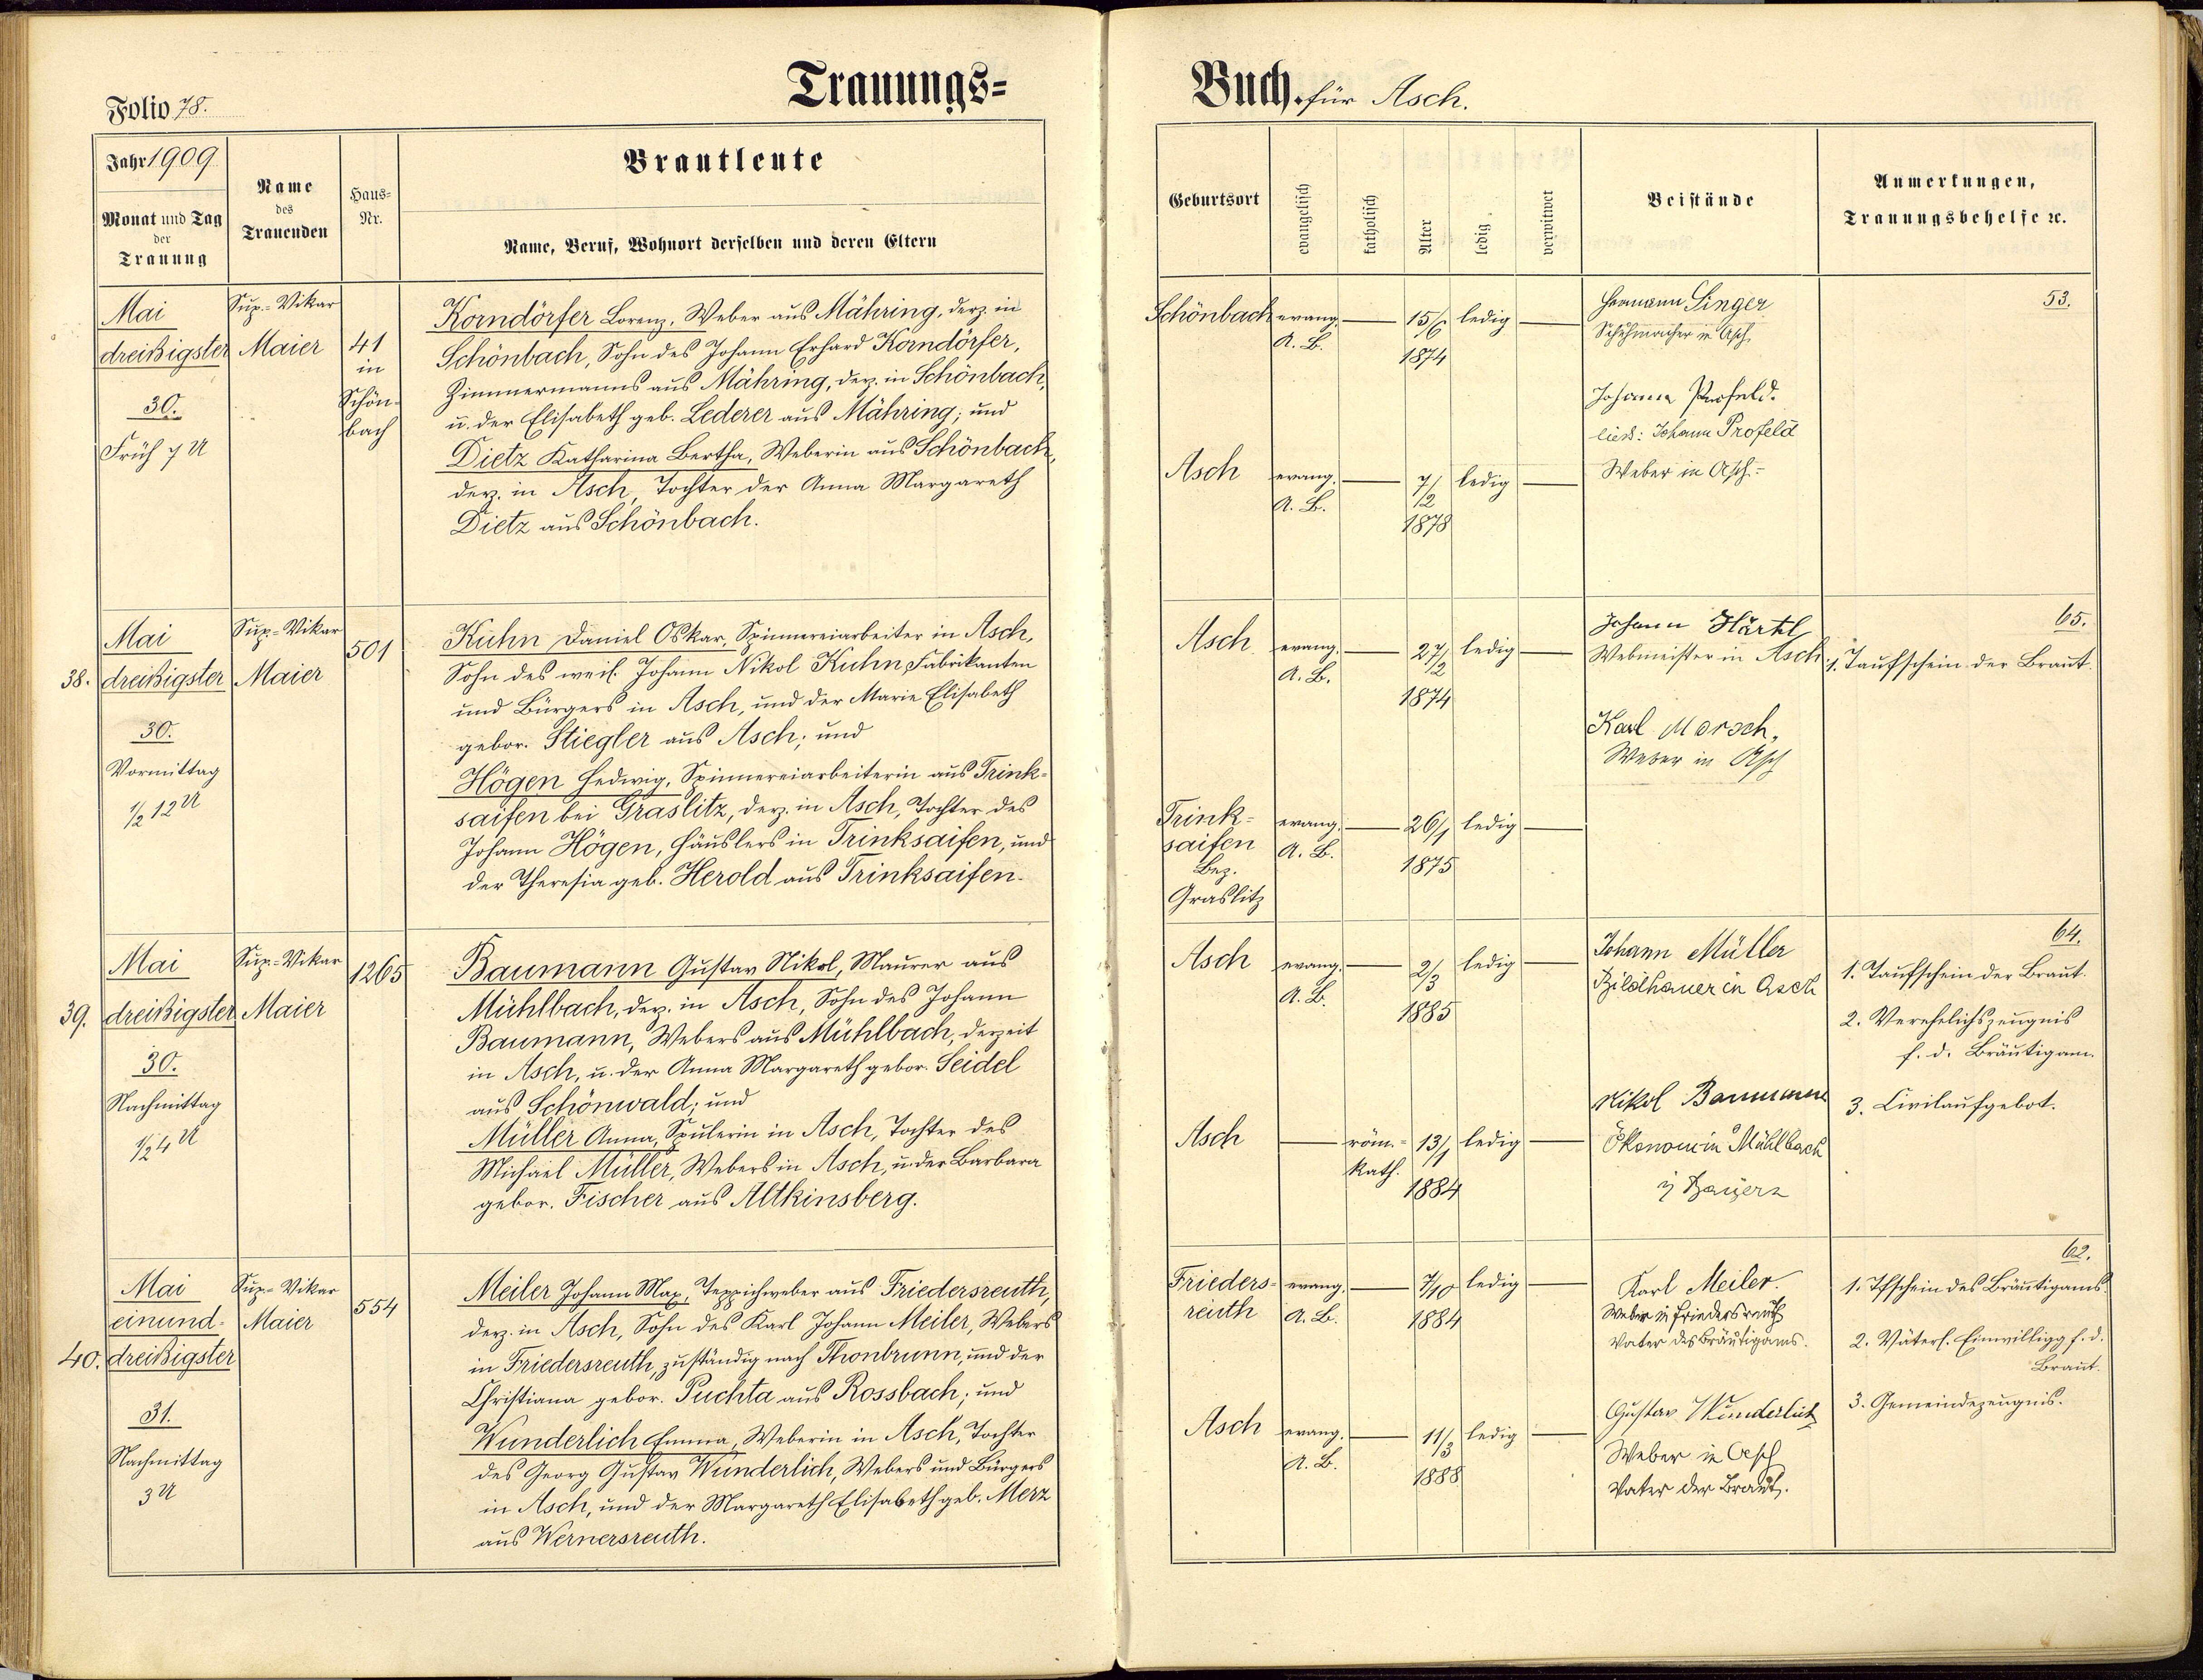 Trauungs=
Buch für Asch.
Folio 78.
Jahr 1909
Monat und Tag
der
Trauung
Name
des
Trauenden
Haus=
Nr.
Brautleute
Name, Beruf, Wohnort derselben und deren Eltern
Geburtsort
evangelisch
katholisch
Alter
ledig
verwitwet
Beistände
Anmerkungen,
Trauungsbehelfe ꝛc.
Mai
dreißigster
30.
Früh 7 U
Sup.-Vikar
Maier
41
in
Schön-
bach
Korndörfer Lorenz, Weber aus Mähring, derz. in
Schönbach, Sohn des Johann Erhard Korndörfer,
Zimmermanns aus Mähring, derz. in Schönbach,
u. der Elisabeth geb. Lederer aus Mähring; und
Dietz Katharina Bertha, Weberin aus Schönbach,
derz. in Asch, Tochter der Anna Margareth
Dietz aus Schönbach.
Schönbach
evang.
A. B.
15/6
1874
ledig
Asch
evang.
A. B.
7/2
1878
ledig
Hermann Singer
Schuhmacher in Asch
Johann Profeld.
lies: Johann Profeld
Weber in Asch.-
53.
38.
Mai
dreißigster
30.
Vormittag
1/2 12 U
Sup.-Vikar
Maier
501
Kuhn Daniel Oskar, Spinnereiarbeiter in Asch,
Sohn des weil. Johann Nikol Kuhn, Fabrikanten
und Bürgers in Asch, und der Marie Elisabeth
gebor. Stiegler aus Asch; und
Högen Hedwig, Spinnereiarbeiterin aus Trink-
saifen bei Graslitz, derz. in Asch, Tochter des
Johann Högen, Häuslers in Trinksaifen, und
der Theresia geb. Herold aus Trinksaifen.
Asch
evang.
A. B.
27/2
1874
ledig
Trink-
saifen
Bez.
Graslitz
evang.
A. B.
26/1
1875
ledig
Johann Härtl
Webmeister in Asch
Karl Morsch,
Weber in Asch
65.
1. Taufschein der Braut.
39.
Mai
dreißigster
30.
Nachmittag
1/2 4 U
Sup.-Vikar
Maier
1265
Baumann Gustav Nikol, Maurer aus
Mühlbach, derz. in Asch, Sohn des Johann
Baumann, Webers aus Mühlbach, derzeit
in Asch, u. der Anna Margareth gebor. Seidel
aus Schönwald; und
Müller Anna, Spulerin in Asch, Tochter des
Michael Müller, Webers in Asch, u. der Barbara
gebor. Fischer aus Altkinsberg.
Asch
evang.
A. B.
2/3
1885
ledig
Asch
röm.-
kath.
13/1
1884
ledig
Johann Müller
Bildhauer in Asch
Nikol Baumann
Ökonom in Mühlbach
i Bayern
64.
1. Taufschein der Braut.
2. Verehelichszeugnis
f. d. Bräutigam.
3. Civilaufgebot.
40.
Mai
einund-
dreißigster
31.
Nachmittag
3 U
Sup.-Vikar
Maier
554
Meiler Johann Max, Teppichweber aus Friedersreuth,
derz. in Asch, Sohn des Karl Johann Meiler, Webers
in Friedersreuth, zuständig nach Thonbrunn, und der
Christiana gebor. Puchta aus Rossbach; und
Wunderlich Emma, Weberin in Asch, Tochter
des Georg Gustav Wunderlich, Webers und Bürgers
in Asch, und der Margareth Elisabeth geb. Merz
aus Wernersreuth.
Frieders-
reuth
evang.
A. B.
7/10
1884
ledig
Asch
evang.
A. B.
11/3
1888
ledig
Karl Meiler
Weber in Friedersreuth
Vater des Bräutigams.
Gustav Wunderlich
Weber in Asch
Vater der Braut.
62.
1. Tfschein des Bräutigams.
2. Väterl. Einwilligg f. d.
Braut.
3. Gemeindezeugnis.